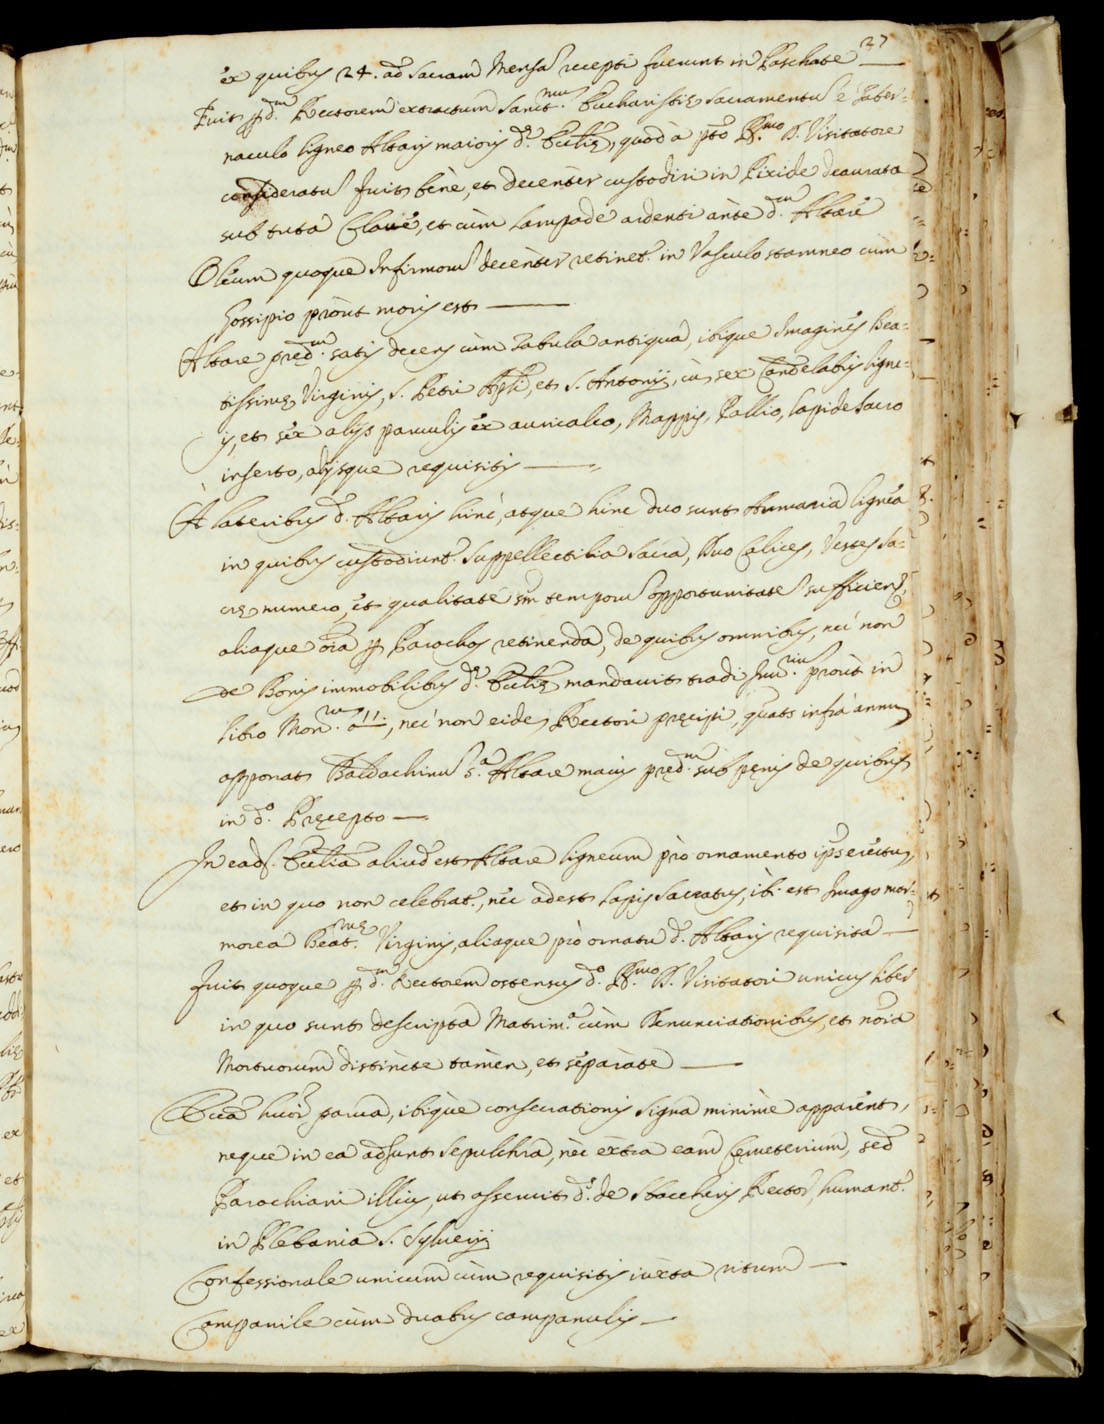 37
ex quibus 24. ad sacram Mensã recepti fuerunt in Paschate —
Fuit p d.m Rectorem extractum Sanct.mum Eucharistię Sacramentũ e Taber=
naculo ligneo Altaris maioris d.ę Eccłię, quod à pto Rs.mo D. Visitatore
consideratũ fuit benè, et decenter custodiri in Pixide deaurata
sub tuta Clave, et cùm Lampade ardenti ànte d.m Altare
Oleum quoque Infirmorũ decènter retinet.r in Vasculo stamneo cùm
Gossipio pròut moris est —
Altare pred.m satis decens cùm Tabula antiqua, ibique Imagines Bea=
tissimę Virginis, S. Petri Apłi, et S. Antonij, cũ sex Candelabris ligne=
is, et sex alijs parvulis ex auricalco, Mappis, Pallio, Lapide Sacro
inserto, alijsque requisitis —
À lateribus d. Altaris hinc, atque hinc duo sunt Armaria lignea
in quibus custodiunt.r Suppellectilia Sacra, Duo Calices, Vestes Sa=
crę numero, et qualitate sm temporũ opportunitatẽ sufficien.
aliaque oĩa p Parochos retinenda, de quibus omnibus, nec non
de Bonis immobilibus d.ę Eccłię mandavit tradi Inv.rium proùt in
libro Mon.rum a 11, nec non eidẽ Rectori pręcipi, quats infra annũ
apponat Baldachinũ s.a Altare maius pręd.m sub pęnis de quibus
in d.o Pręcepto —
In ead. Eccłia aliud est Altare ligneum prò ornamento ipsẽ erectũ,
et in quo non celebrat.r, nec adest Lapis Sacratus, ibi est Imago mar=
morea Beat.mę Virginis, aliaque prò ornatu d. Altaris requisita —
Fuit quoque p d.m Rectorem ostensus d.o Rs.mo D. Visitatori unicus liber
in quo sunt descripta Matrim.a cùm Denunciationibus, et noĩa
Mortuorum distincte tamèn, et sepàrate —
Eccłia huõi parva, ibique consecrationis signa minime apparent,
neque in ea adsunt Sepulchra, nèc extra eam Cęmeterium, sed
Parochiani illius, ut asseruit d.s de Stoccheris Rector, humant.r
in Plebania S. Sylvestri
Confessionale unicum cùm requisitis iuxta ritum —
Campanile cùm duabus campanulis —